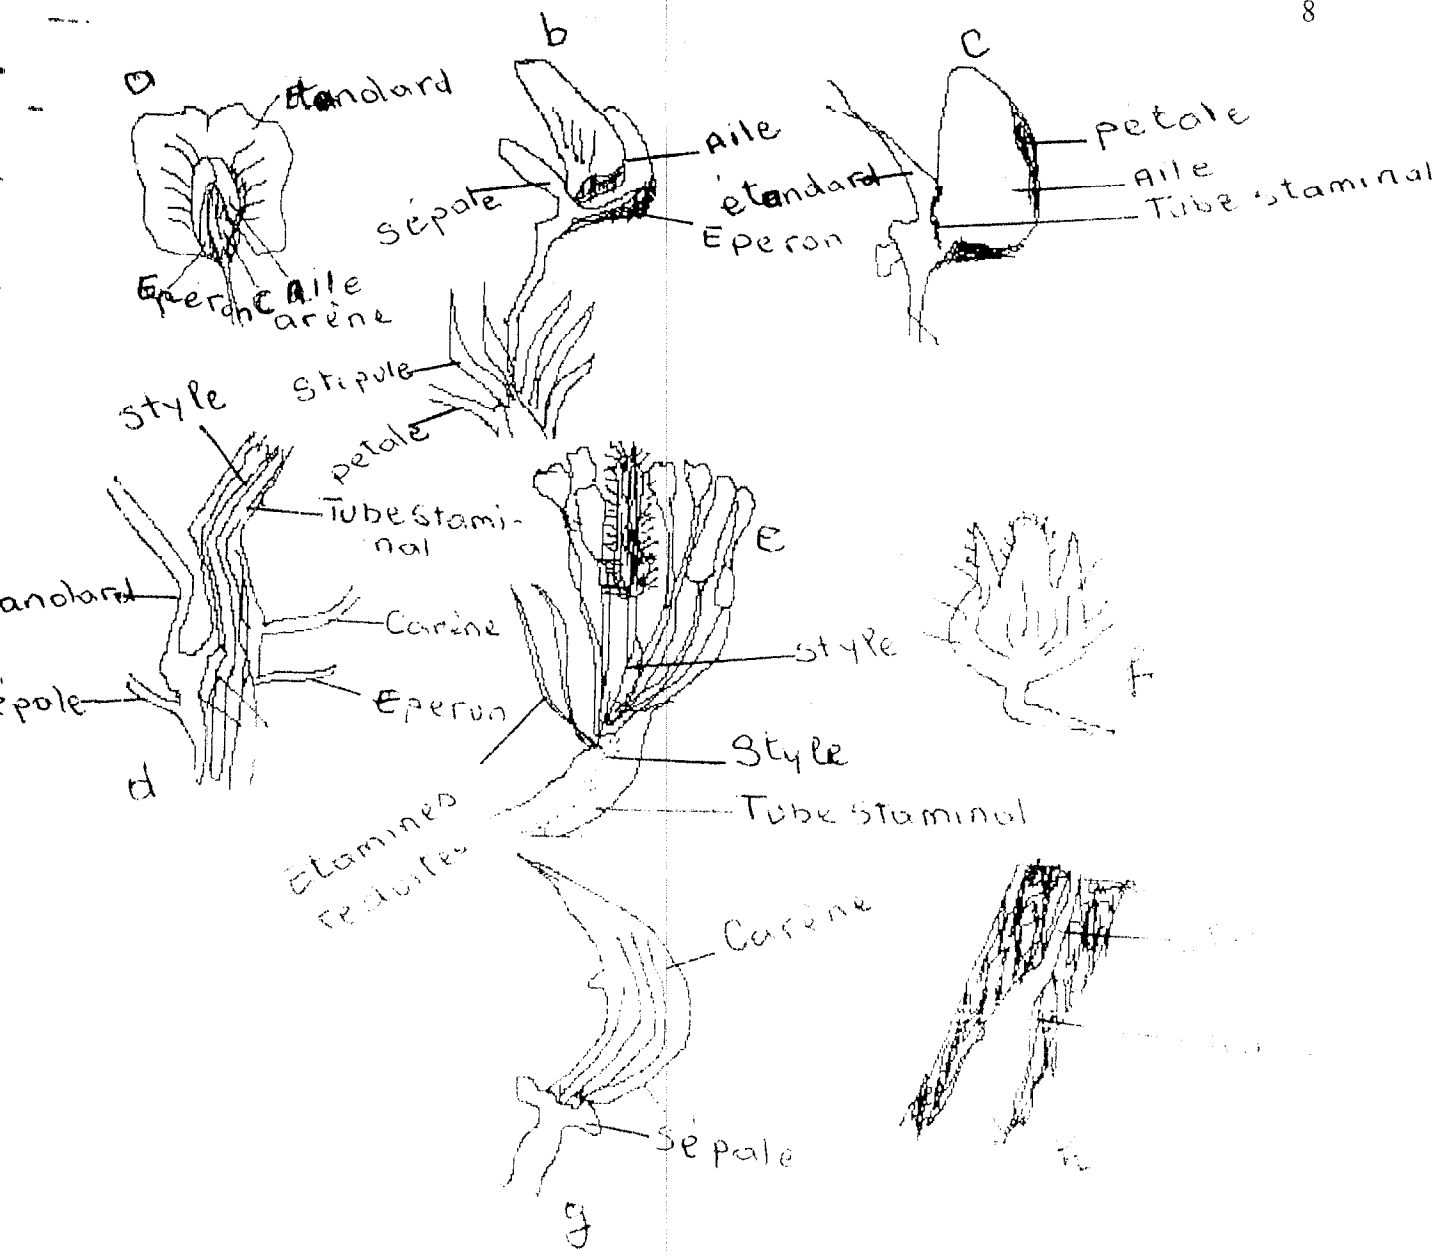 8
a
Etandard
Eperon
Aile
Carène
b
Aile
sépale
Eperon
Stipule
petale
C
pétale
étandard
Aile
Tube staminal
style
Tube stami-
nal
andard
Carène
épale
Eperon
d
e
style
Style
Tube staminal
Etamines
reduites
f
Carène
sépale
g
h